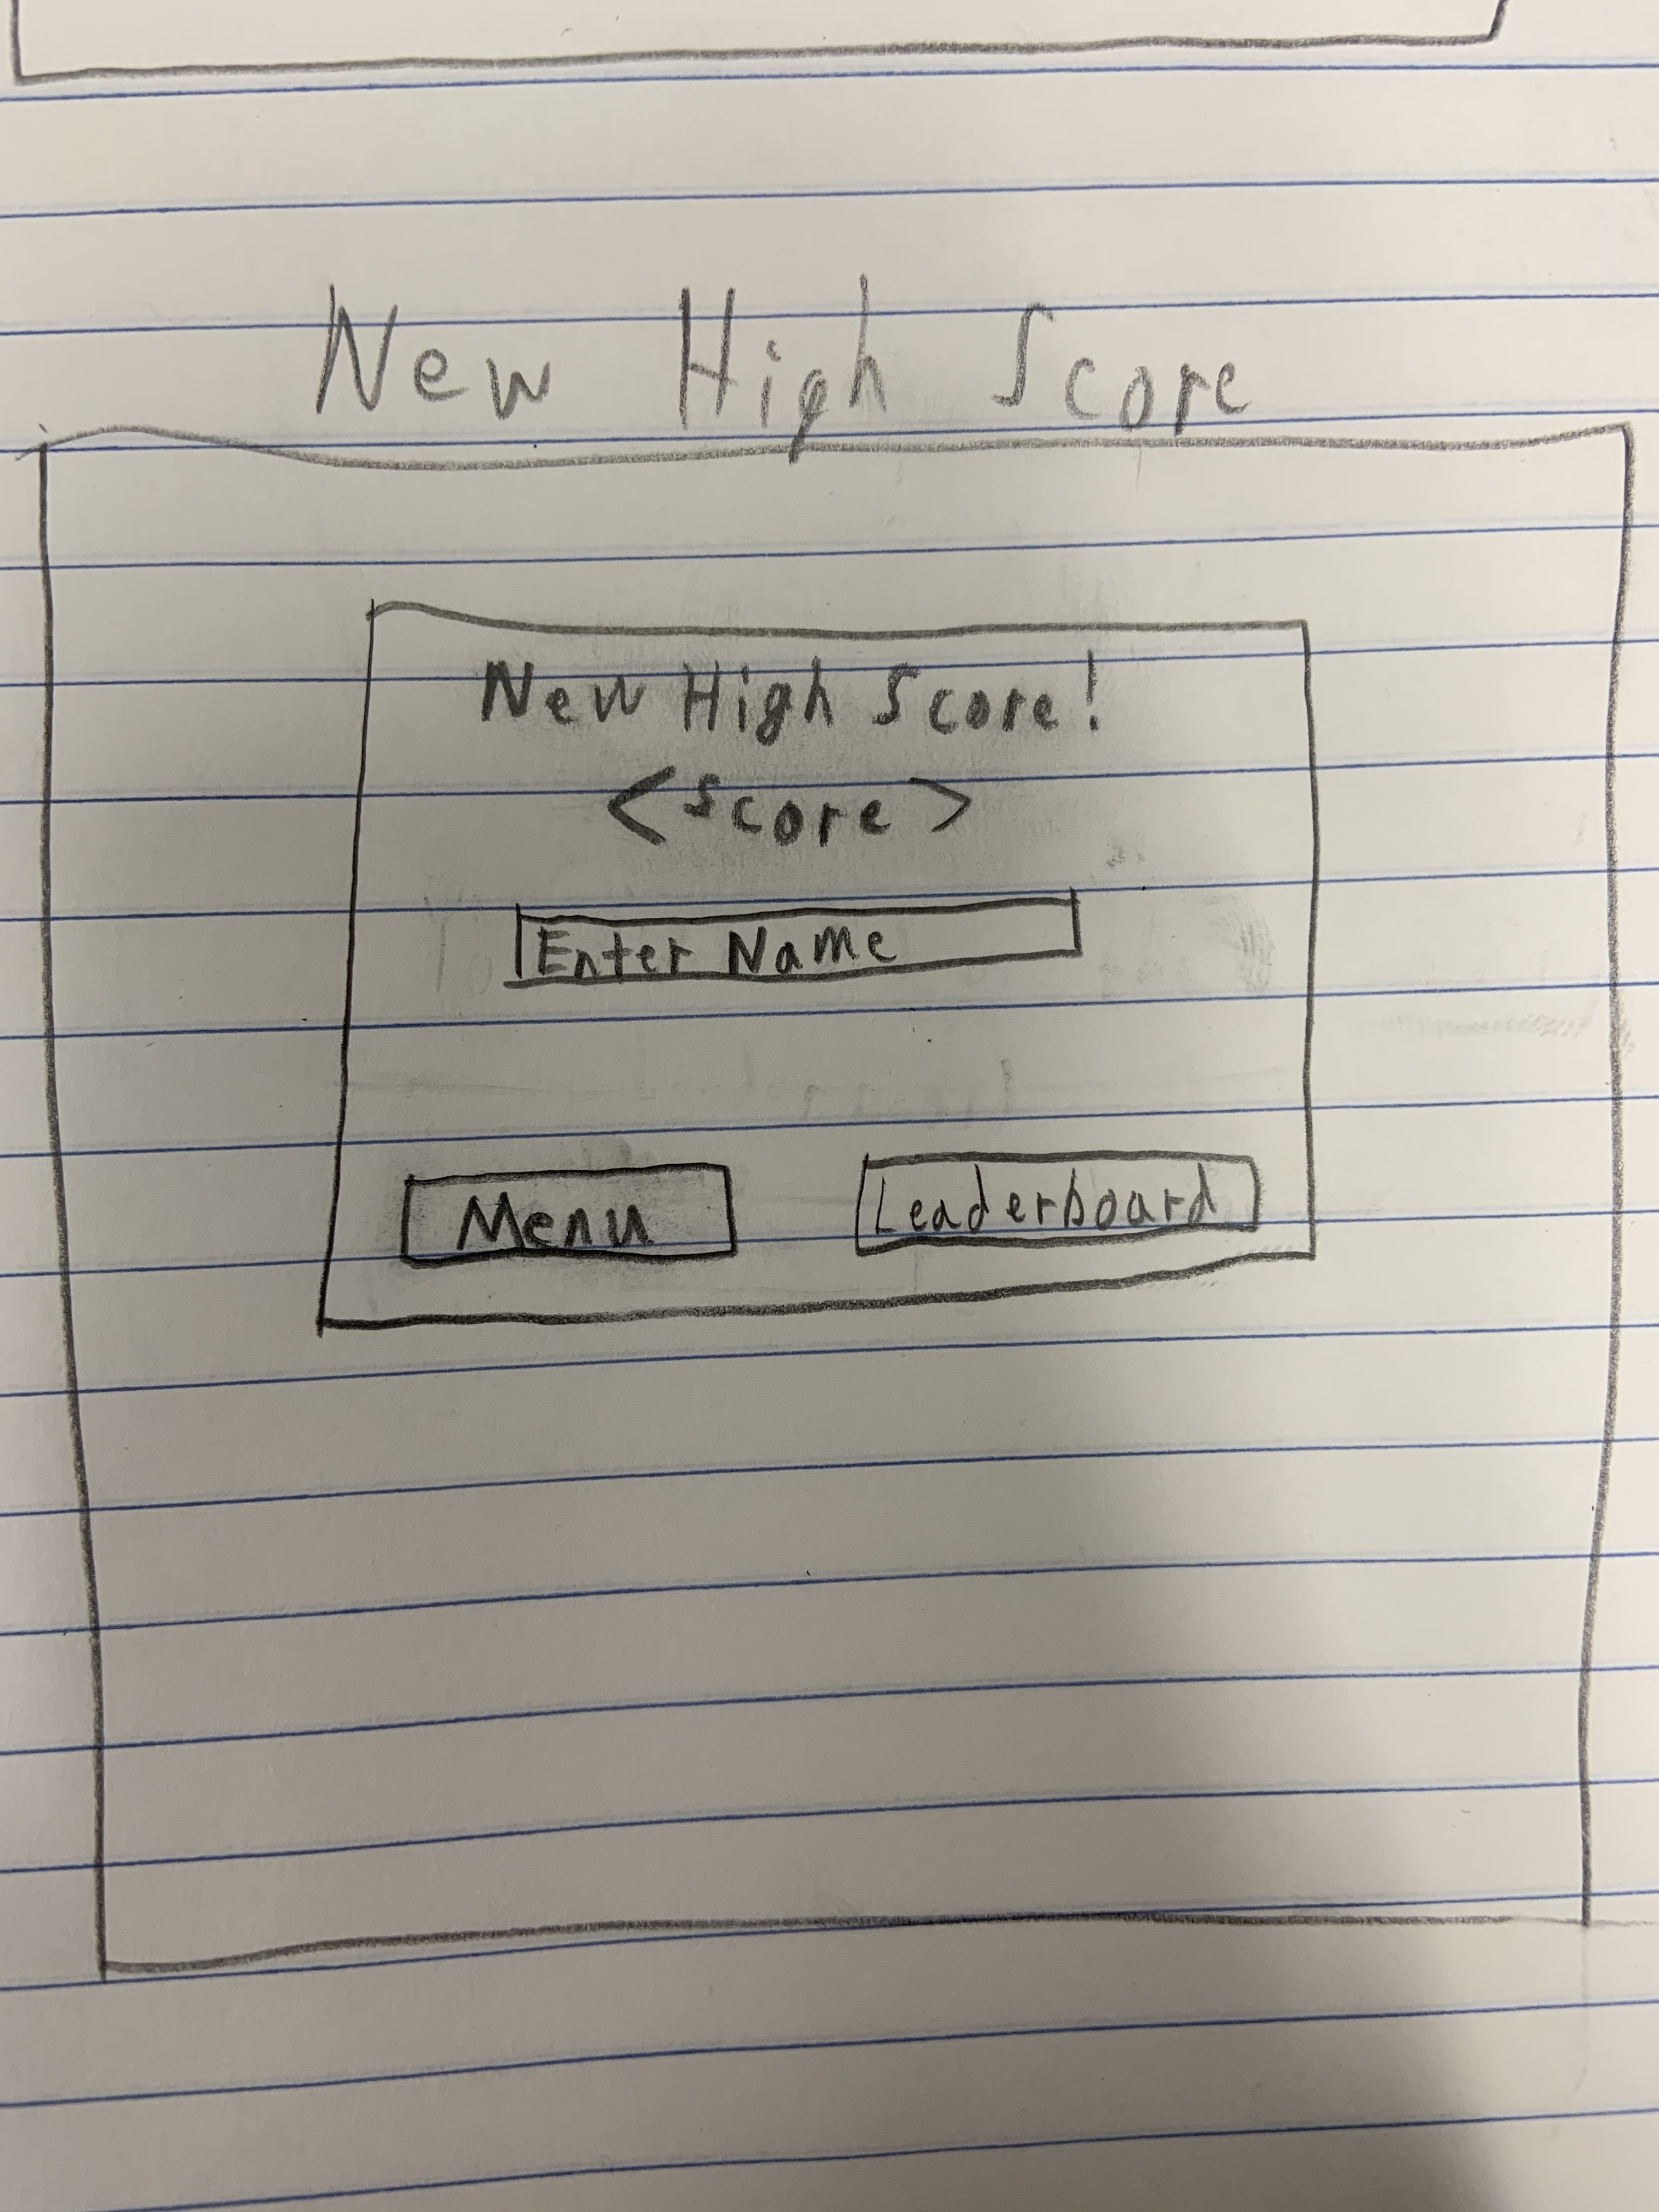 New High Score
New High Score!
<Score>
Enter Name
Menu
Leaderboard